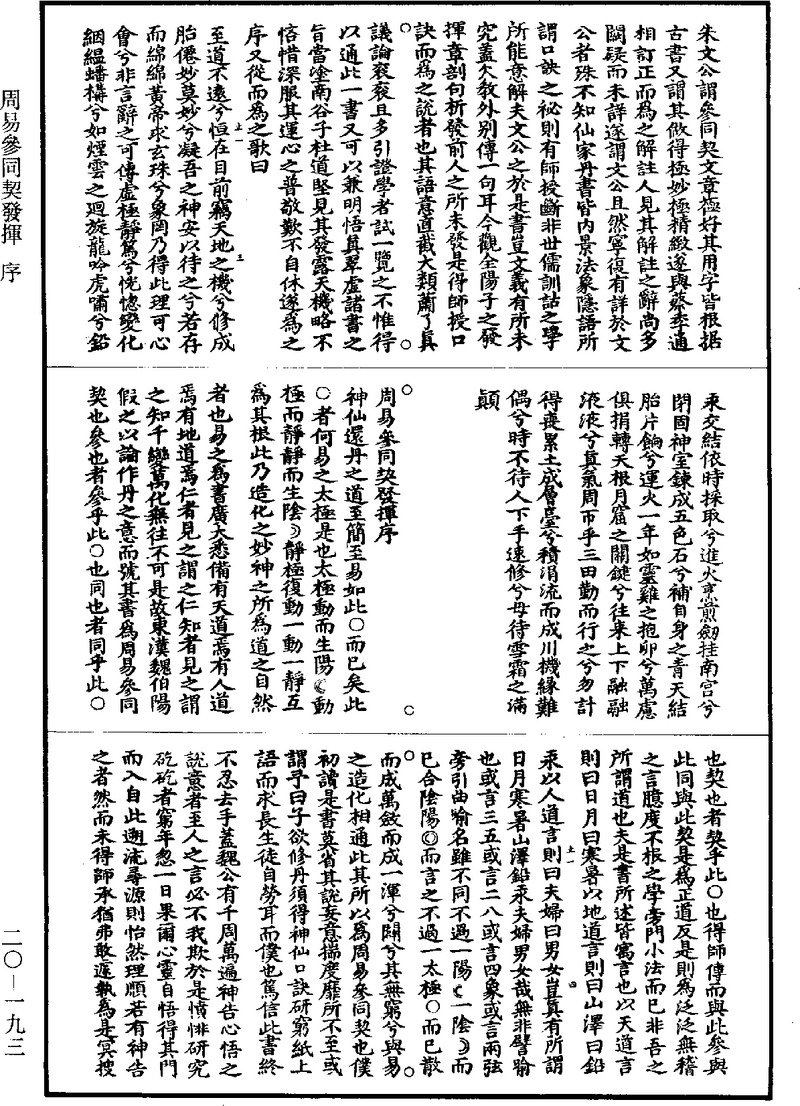 周易參同契發揮 序
二〇—一九三
朱文公謂參同契文章極好其用字皆根据
古書又謂其做得極妙極精緻遂與蔡季通
相訂正而為之解註人見其解註之辭尚多
闕疑而未詳遂謂文公且然寧復有詳於文
公者殊不知仙家丹書皆內景法象隱語所
謂口訣之祕則有師授斷非世儒訓詁之學
所能意解夫文公之於是書豈文義有所未
究蓋欠教外別傳一句耳今觀全陽子之發
揮章剖句析發前人之所未發是得師授口
訣而為之說者也其語意直截大類蕭了真
議論袞袞且多引證學者試一覽之不惟得
以通此一書又可以兼明悟真翠虛諸書之
旨當塗南谷子杜道堅見其發露天機略不
悋惜深服其運心之普敬歎不自休遂為之
序又從而為之歌曰
至道不遠兮恒在目前竊天地之機兮修成
胎僊妙莫妙兮凝吾之神安以待之兮若存
而綿綿黃帝求玄珠兮象罔乃得此理可心
會兮非言辭之可傳虛極靜篤兮恍惚變化
絪縕蟠構兮如煙雲之迴旋龍吟虎嘯兮鉛
汞交結依時採取兮進火烹煎劒挂南宮兮
閉固神室鍊成五色石兮補自身之青天結
胎片餉兮運火一年如靈雞之抱卵兮萬慮
俱捐轉天根月窟之關鍵兮往來上下融融
液液兮真氣周帀乎三田勤而行之兮勿計
得喪累土成層臺兮積涓流而成川機緣難
偶兮時不待人下手速修兮毋待雪霜之滿
顛
周易參同契發揮序
神仙還丹之道至簡至易如此○而已矣此
○者何易之太極是也太極動而生陽☾動
極而靜靜而生陰☽靜極復動一動一靜互
為其根此乃造化之妙神之所為道之自然
者也易之為書廣大悉備有天道焉有人道
焉有地道焉仁者見之謂之仁知者見之謂
之知千變萬化無往不可是故東漢魏伯陽
假之以論作丹之意而號其書為周易參同
契也參也者參乎此○也同也者同乎此○
也契也者契乎此○也得師傳而與此參與
此同與此契是為正道反是則為泛泛無稽
之言臆度不根之學旁門小法而已非吾之
所謂道也夫是書所述皆寓言也以天道言
則曰日月曰寒暑以地道言則曰山澤曰鉛
汞以人道言則曰夫婦曰男女豈真有所謂
日月寒暑山澤鉛汞夫婦男女哉無非譬喻
也或言三五或言二八或言四象或言兩弦
旁引曲喻名雖不同不過一陽☾一陰☽而
已合陰陽◎而言之不過一太極○而已散
而成萬斂而成一渾兮闢兮其無窮兮與易
之造化相通此其所以為周易參同契也僕
初讀是書莫省其說妄意揣度靡所不至或
謂予曰子欲修丹須得神仙口訣研窮紙上
語而求長生徒自勞耳而僕也篤信此書終
不忍去手蓋魏公有千周萬遍神告心悟之
說意者至人之言必不我欺於是憤悱研究
矻矻者窮年忽一日果爾心靈自悟得其門
而入自此遡流尋源則怡然理順若有神告
之者然而未得師承猶弗敢遽執為是冥搜